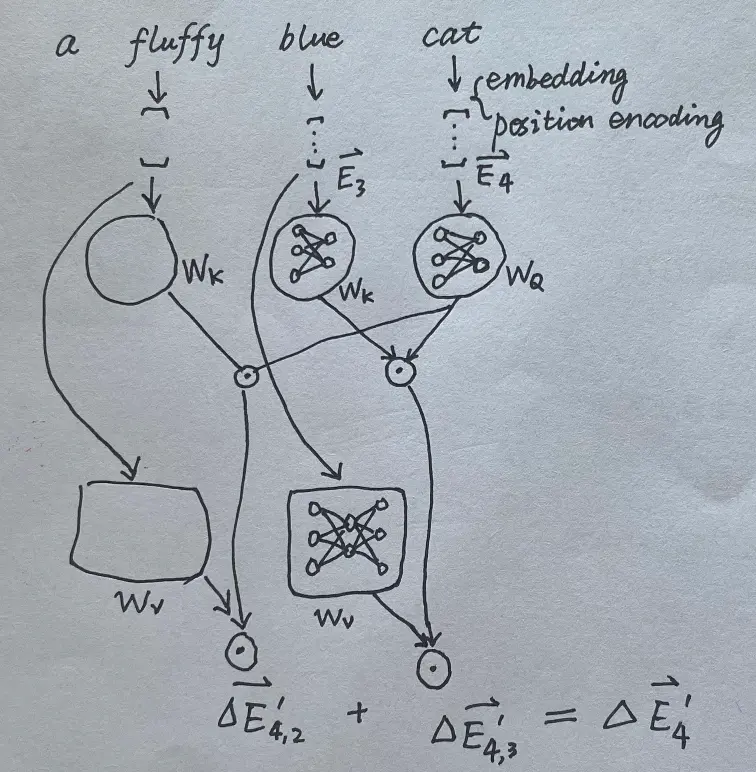 a fluffy blue cat
embedding
position encoding
E₃ E₄
W_K W_K W_Q
W_V W_V
ΔE'₄,₂ + ΔE'₄,₃ = ΔE'₄